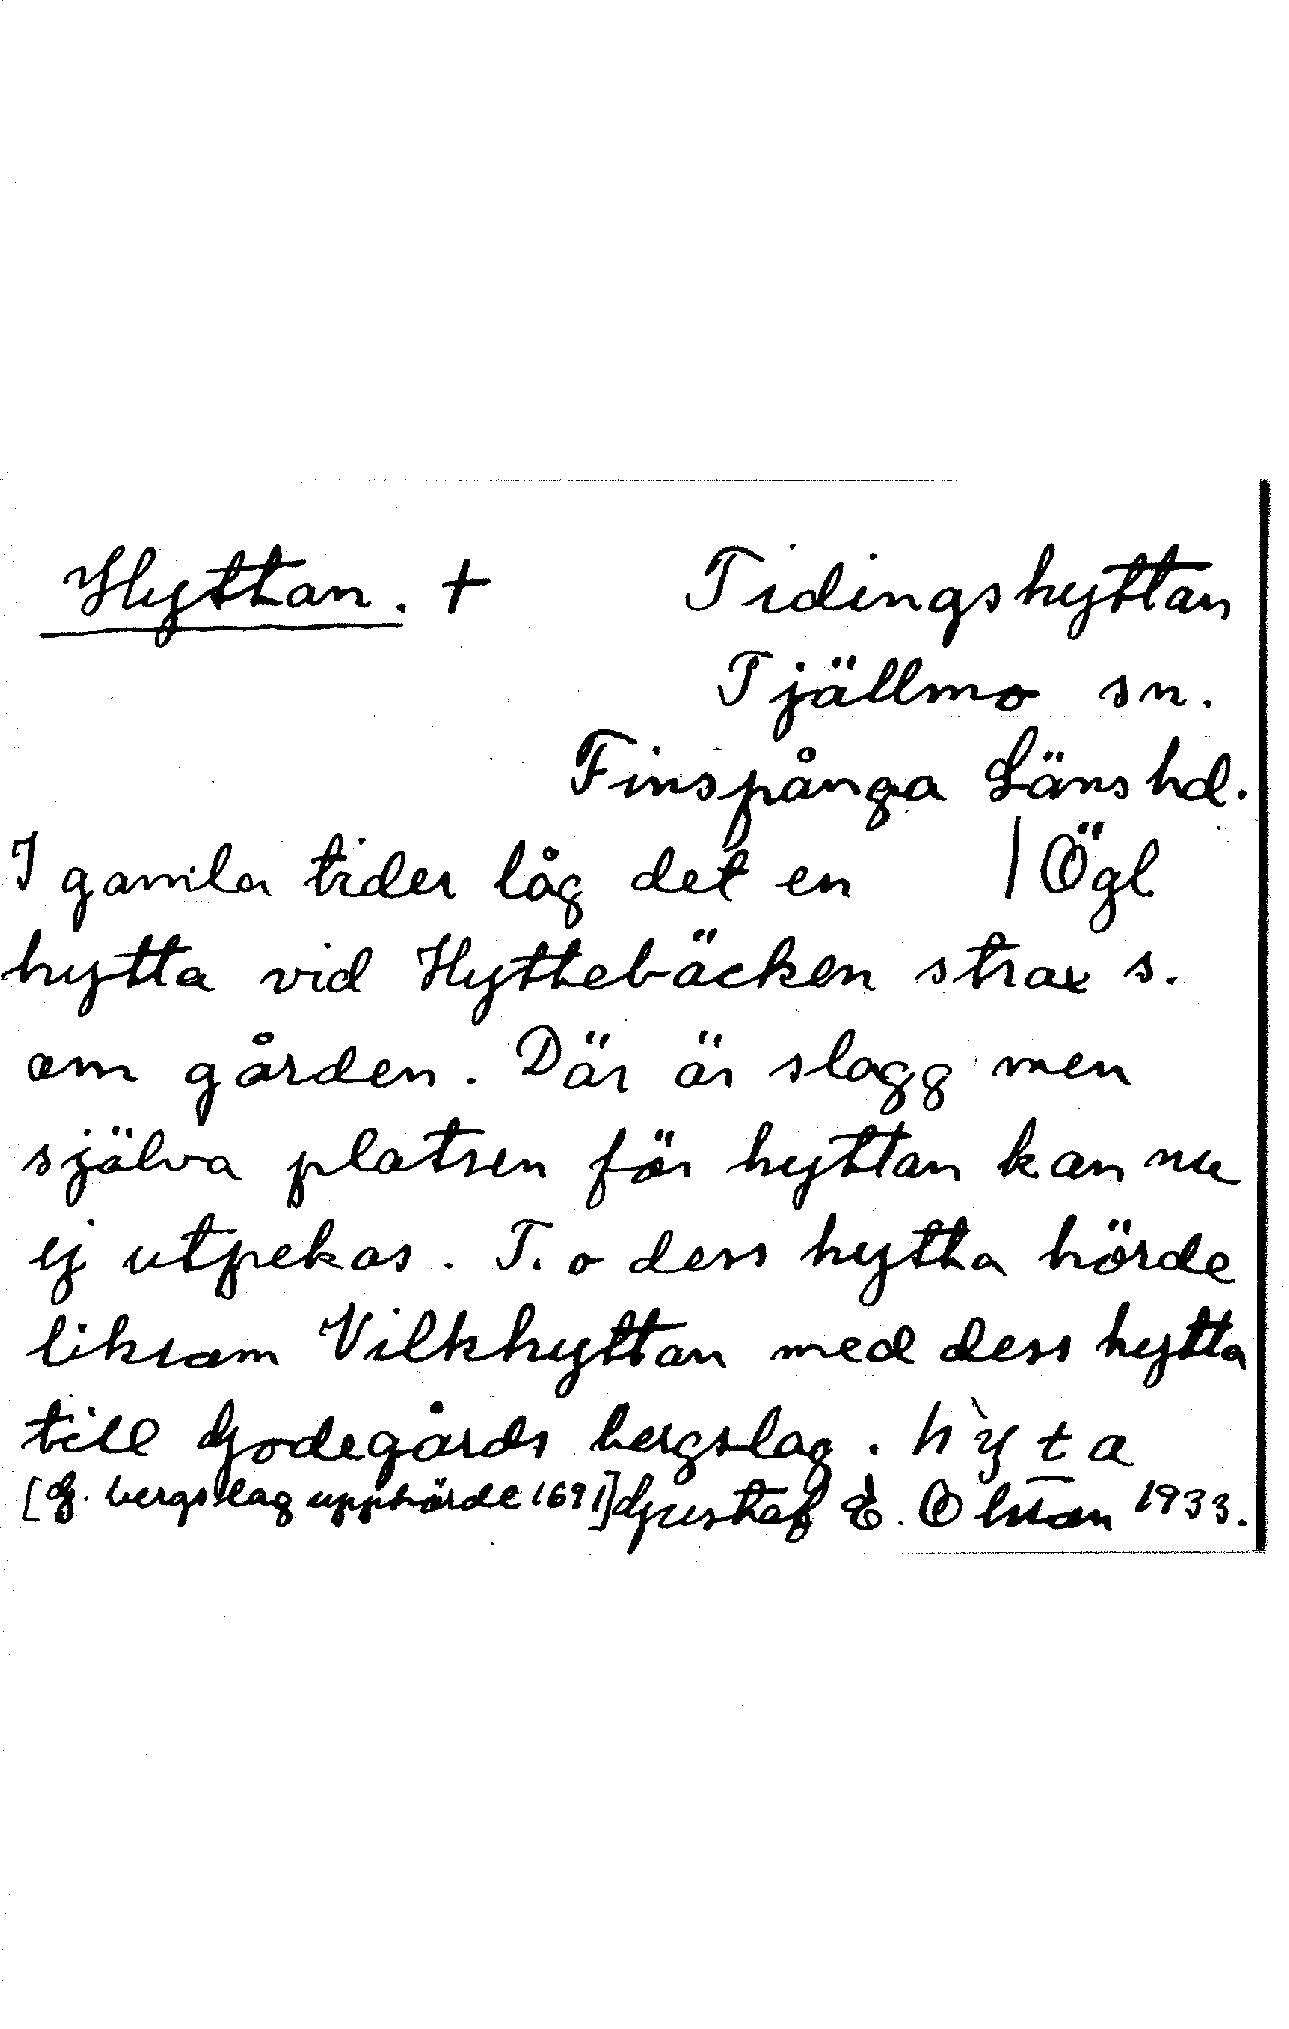 Hyttan. + Tidingshyttan
Tjällmo sn.
Finspånga Läns hd.
I gamla tider låg det en | Ögl
hytta vid Hyttebäcken strax s.
om gården. Där är slagg men
själva platsen för hyttan kan nu
ej utpekas. T. o dess hytta hörde
liksom Vilkhyttan med dess hytta
till Godegårds bergslag. hy̆̀ta
[G. bergslag upphörde 1691] Gustaf E. Olsson 1933.